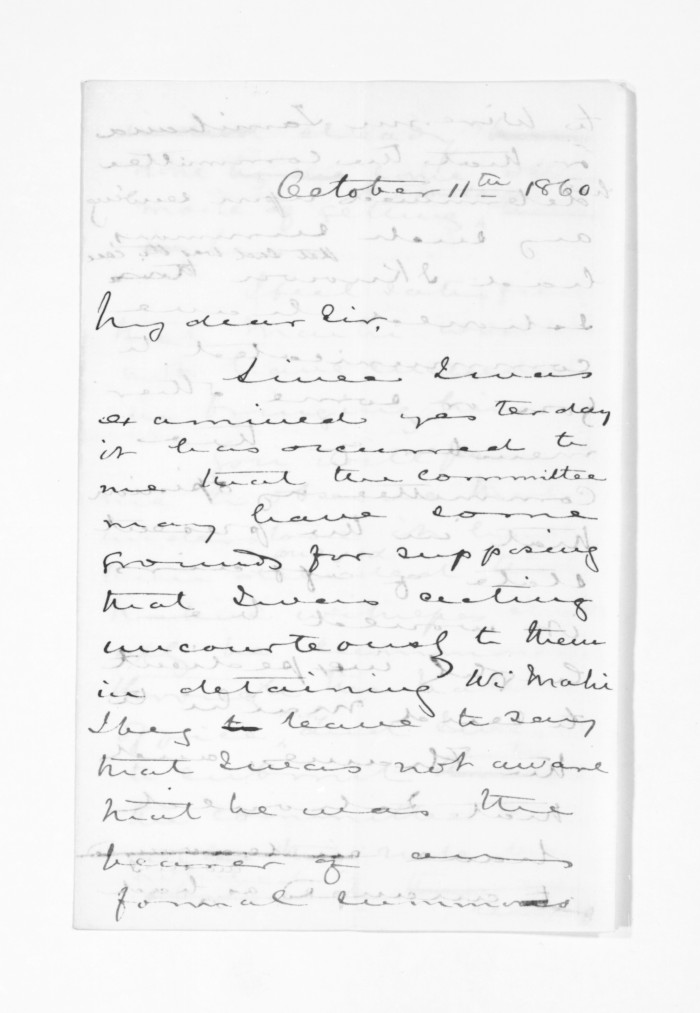 October 11th 1860
My dear Sir,
Since I was
examined yesterday
it has occurred to
me that the committee
may have some
grounds for supposing
that I was acting
uncourteously to them
in detaining Wi Mahi
I beg to leave to say
that I was not aware
that he was the
bearer of any
formal summons